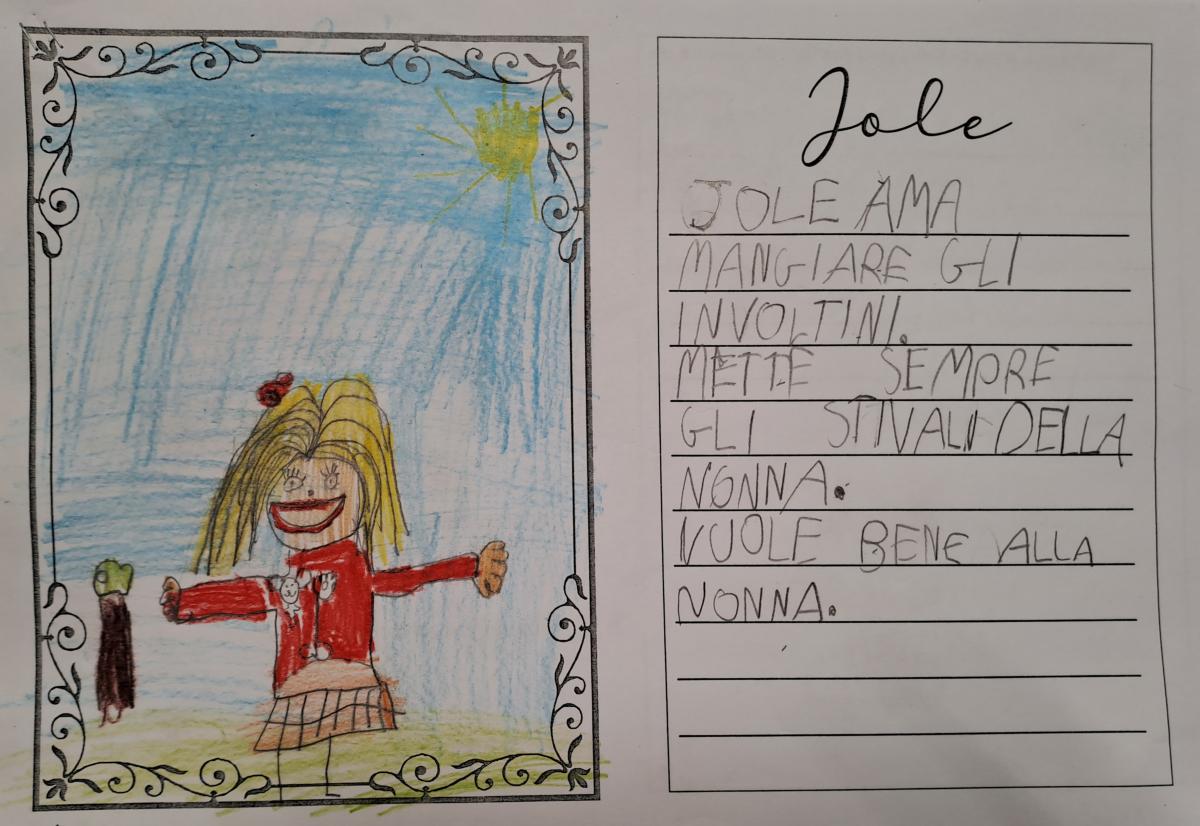 Jole
JOLE AMA
MANGIARE GLI
INVOLTINI.
METTE SEMPRE
GLI STIVALI DELLA
NONNA.
VUOLE BENE ALLA
NONNA.